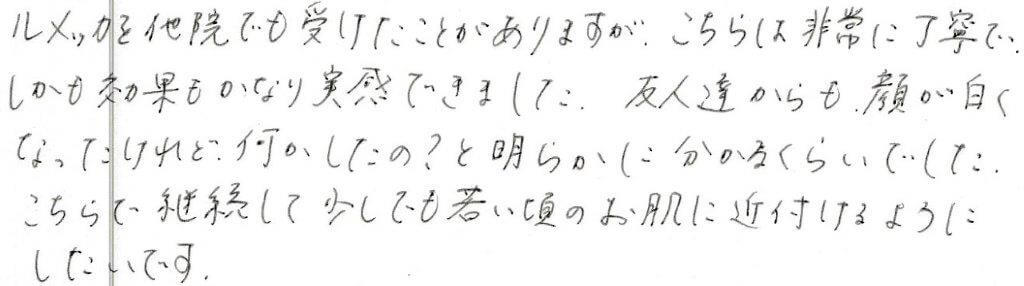 ルメッカを他院でも受けたことがありますが、こちらは非常に丁寧で、
しかも効果もかなり実感できました。友人達からも、顔が白く
なったけれど、何かしたの?と明らかに分かるくらいでした。
こちらで継続して少しでも若い頃のお肌に近付けるように
したいです。